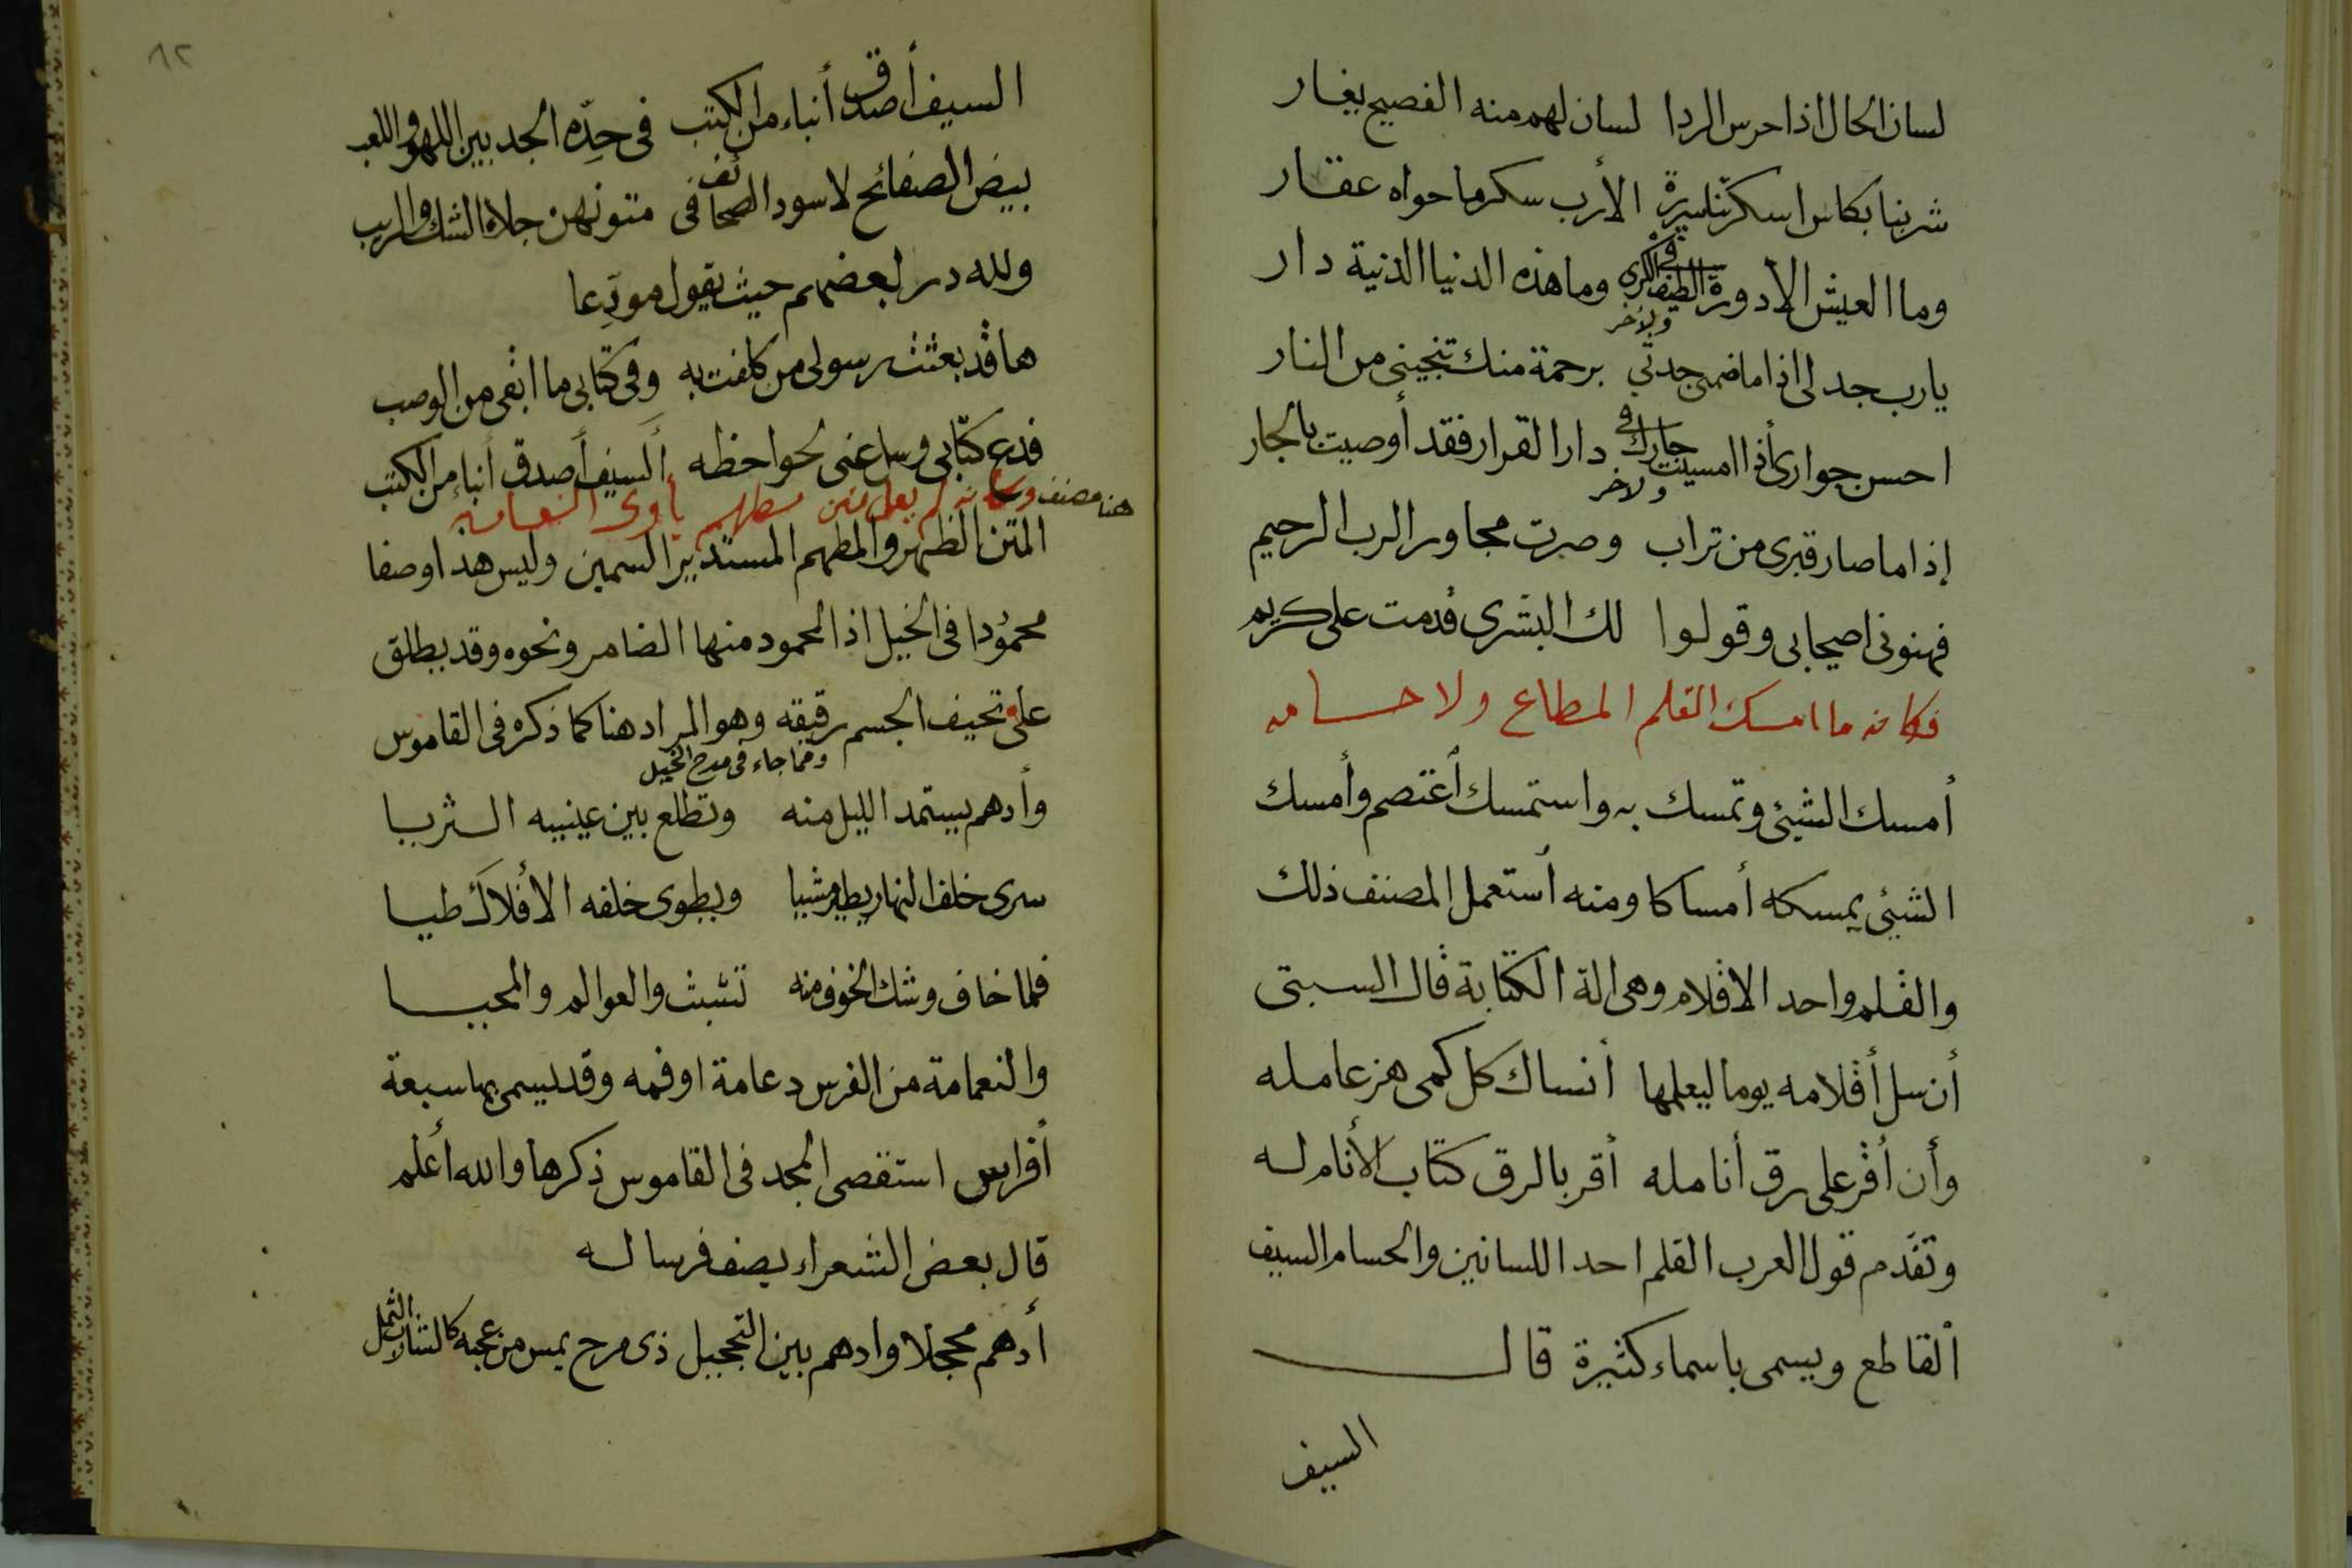 لسان الحال اذا حرس الردا لسان لهم منه الفصيح يغار
شربنا بكاس اسكرتنا سريرة الأرب سكر ما حواه عقار
وما العيش الا دورة الطيف في الكرى وما هذه الدنيا الدنية دار
ولآخر
يا رب جد لى اذا ما ضمى جدتي برحمة منك تنجينى من النار
احسن جوارى أذا امسيت جارك فى دار القرار فقد أوصيت بالجار
ولاخر
إذا ما صار قبرى من تراب وصرت مجاور الرب الرحيم
فهنونى اصيحابى وقولوا لك البشرى قدمت على كريم
فكانه ما امسك القلم المطاع ولا حسامه
أمسك الشيئ وتمسك به واستمسك أعتصم وأمسك
الشيئ يمسكه أمساكا ومنه أستعمل المصنف ذلك
والقلم واحد الاقلام وهى الة الكتابة قال السبتى
أن سل أقلامه يوما ليعلمها أنساك كل كمى هز عامله
وأن أقر على رق أنامله أقر بالرق كتاب الأنام له
وتقدم قول العرب القلم احد اللسانين والحسام السيف
ألقاطع ويسمى باسماء كثيرة قال
السيف
٨٢
السيف أصدق أنباء من الكتب فى حدّه الجد بين اللهو واللعب
بيض الصفائح لا سود الصحائف فى متونهن جلاء الشك والريب
ولله در بعضهم حيث يقول مودّعا
ها قد بعثت رسولى من كلفت به وفى كتابى ما ابقى من الوصب
فدع كتابى وسل عنى لحواحظه ألسيف أصدق أنباء من الكتب
هنا مصنف وكأنه لم يعل متن مطهم ياوى النعامه
المتن الظهر والمطهم المستدير السمين وليس هذا وصفا
محمُودا فى الخيل اذ المحمود منها الضامر ونحوه وقد يطلق
على نحيف الجسم رقيقه وهو المراد هنا كما ذكره فى القاموس
ومما جاء فى مدح الخيل
وأدهم يستمد الليل منه وتطلع بين عينيه الثريا
سرى خلف النهار يطير مشيا ويطوى خلفه الأفلاك طيا
فلما خاف وشك الخوف منه تشبث والعوالم والمحيا
والنعامة من الفرس دعامة او فمه وقد يسمى بها سبعة
أفراس استقصى المجد فى القاموس ذكرها والله أعلم
قال بعض الشعراء يصف فرسا له
أدهم محجلا وادهم بين التحجيل ذى مرح يمس من عجبه كالشارب الثمل